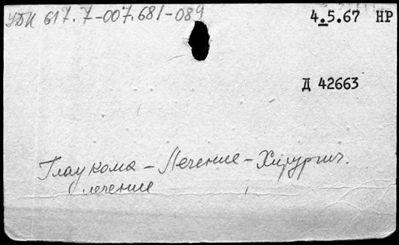 УДК 617.7-007.681-089
4.5.67 НР
Д 42663
Глаукома - Лечение - Хирургич.
лечение